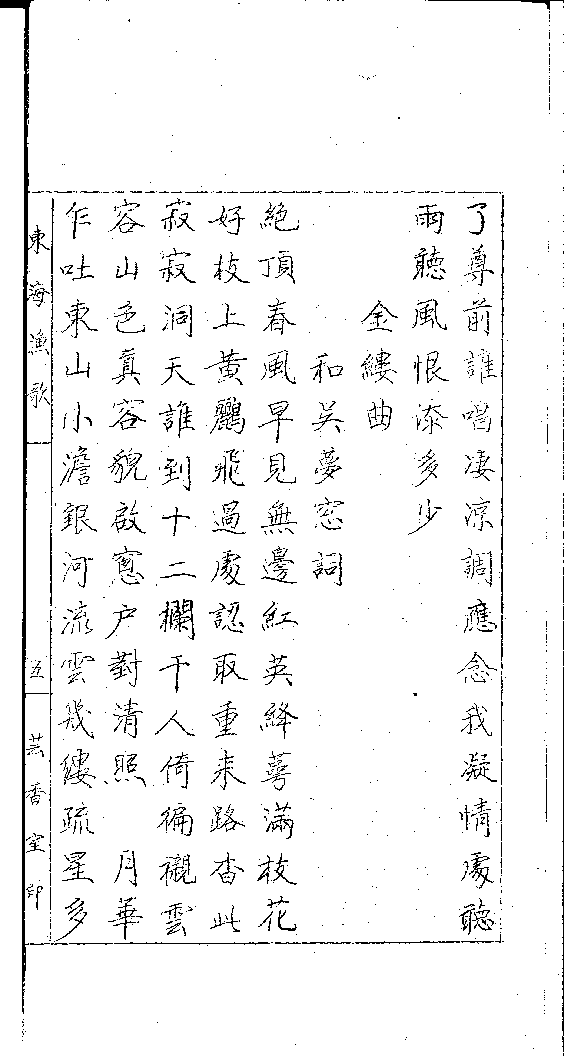 了尊前誰唱淒涼調應念我凝情處聽
雨聽風恨添多少
金縷曲
和吴夢窓詞
絶頂春風早見無邊紅英絳萼滿枝花
好枝上黃鸝飛過處認取重来路杳此
寂寂洞天誰到十二闌干人倚徧襯雲
容山色真容貌啟窓户對清照　月華
乍吐東山小澹銀河流雲幾縷疏星多
東海漁歌
五
芸香室印